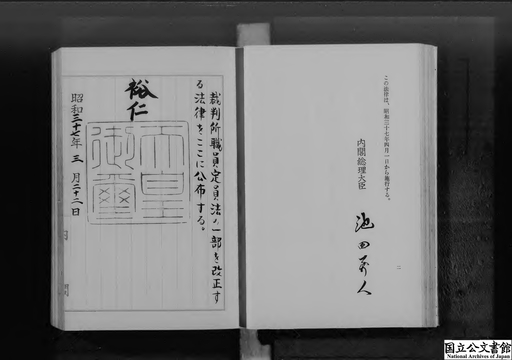 この法律は、昭和三十七年四月一日から施行する。
内閣総理大臣
池田勇人
二
裁判所職員定員法の一部を改正す
る法律をここに公布する。
裕仁
天皇
御璽
昭和三十七年三月二十二日
国立公文書館
National Archives of Japan